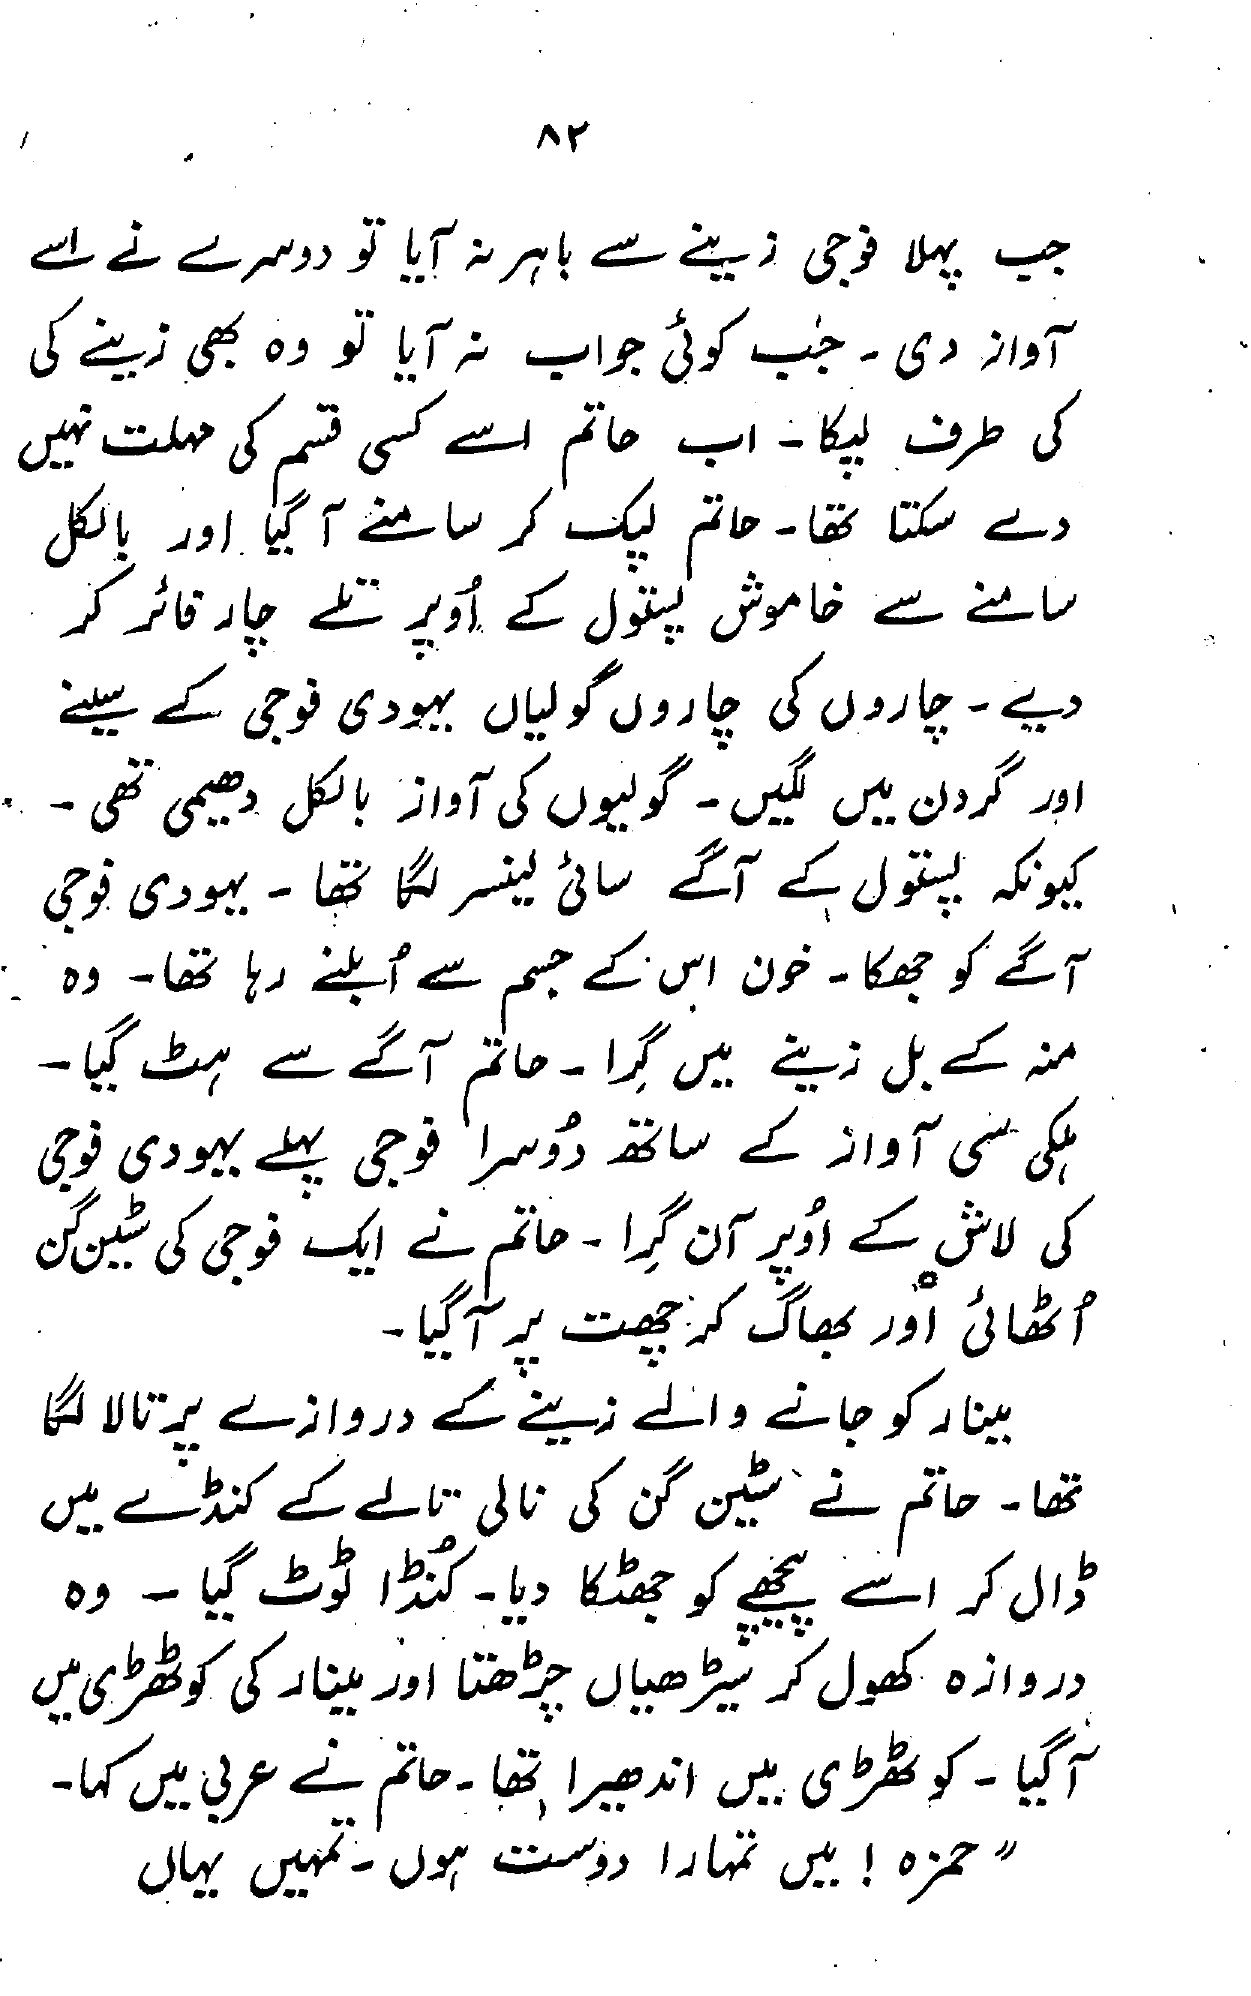 ۸۲
جب پہلا فوجی زینے سے باہر نہ آیا تو دوسرے نے اسے
آواز دی ۔ جب کوئی جواب نہ آیا تو وہ بھی زینے کی
کی طرف لپکا ۔ اب حاتم اسے کسی قسم کی مہلت نہیں
دے سکتا تھا۔ حاتم لپک کر سامنے آ گیا اور بالکل
سامنے سے خاموش پستول کے اُوپر تلے چار فائر کر
دیے ۔ چاروں کی چاروں گولیاں یہودی فوجی کے سینے
اور گردن میں لگیں ۔ گولیوں کی آواز بالکل دھیمی تھی ۔
کیونکہ پستول کے آگے سائی لینسر لگا تھا ۔ یہودی فوجی
آگے کو جھکا ۔ خون اس کے جسم سے اُبلنے رہا تھا ۔ وہ
منہ کے بل زینے میں گِرا ۔ حاتم آگے سے ہٹ گیا ۔
ہلکی سی آواز کے ساتھ دُوسرا فوجی پہلے یہودی فوجی
کی لاش کے اُوپر آن گِرا ۔ حاتم نے ایک فوجی کی سٹین گن
اُٹھائی اور بھاگ کر چھت پر آ گیا ۔
مینار کو جانے والے زینے کے دروازے پر تالا لگا
تھا ۔ حاتم نے سٹین گن کی نالی تالے کے کنڈے میں
ڈال کر اسے پیچھے کو جھٹکا دیا ۔ کُنڈا ٹوٹ گیا ۔ وہ
دروازہ کھول کر سیڑھیاں چڑھتا اور مینار کی کوٹھڑی میں
آ گیا ۔ کوٹھڑی میں اندھیرا تھا ۔ حاتم نے عربی میں کہا ۔
” حمزہ ! میں تمہارا دوست ہوں ۔ تمہیں یہاں